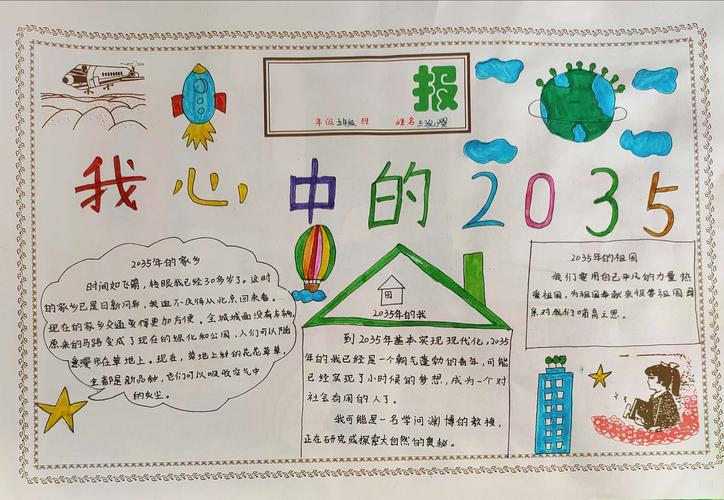 报
年级 五年级 班 姓名
我心中的2035
2035年的家乡
时间如飞箭，转眼我已经30多岁了。这时
的家乡已是日新月异，我迫不及待从北京回来看。
现在的家乡交通变得更加方便。全城城面没有车辆，
原来的马路变成了现在的绿化和公园，人们可以随
意漫步在草地上。现在，草地上种的花花草草，
全都是新品种，它们可以吸收空气中
的灰尘。
2035年的我
到2035年基本实现现代化，2035
年的我已经是一个朝气蓬勃的青年，可能
已经实现了小时候的梦想，成为一个对
社会有用的人了。
我可能是一名学问渊博的教授，
正在研究或探索大自然的奥秘。
2035年的祖国
我们要用自己平凡的力量 热
爱祖国，为祖国奉献来报答祖国母
亲对我们哺育之恩。